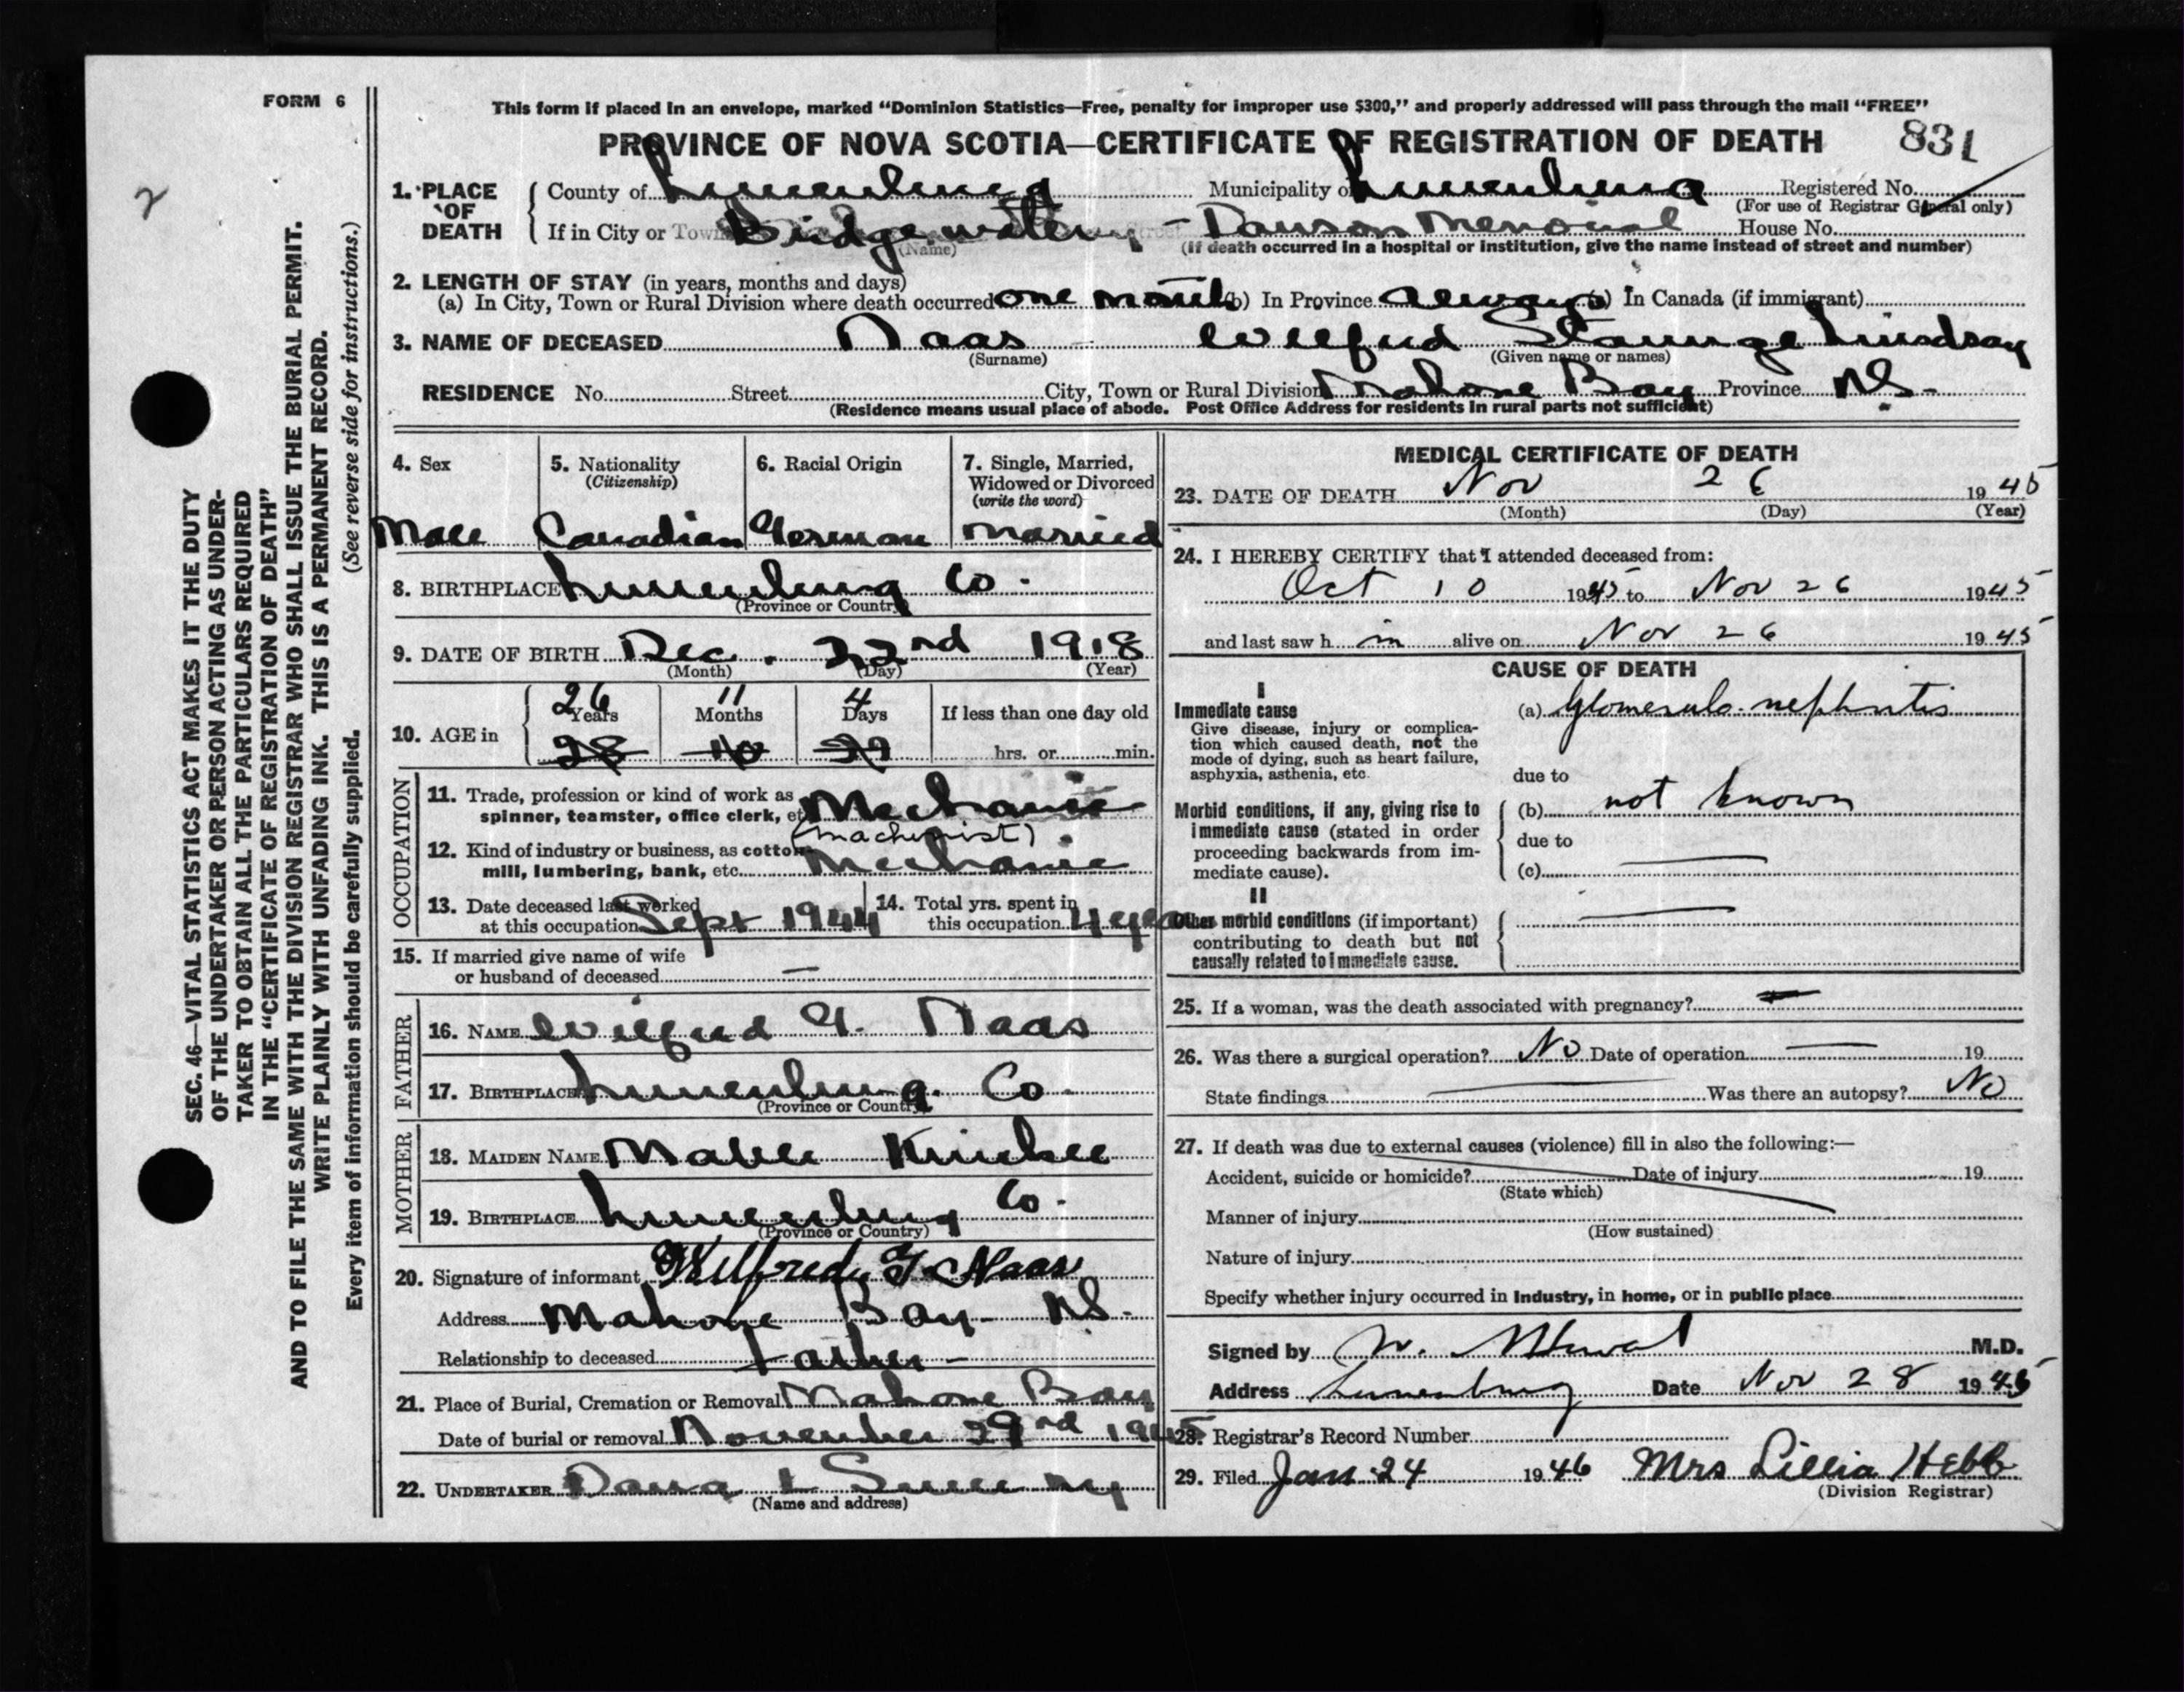 FORM 6
This form if placed in an envelope, marked “Dominion Statistics—Free, penalty for improper use $300,” and properly addressed will pass through the mail “FREE”
PROVINCE OF NOVA SCOTIA—CERTIFICATE OF REGISTRATION OF DEATH 831
2
SEC. 46—VITAL STATISTICS ACT MAKES IT THE DUTY
OF THE UNDERTAKER OR PERSON ACTING AS UNDER-
TAKER TO OBTAIN ALL THE PARTICULARS REQUIRED
IN THE “CERTIFICATE OF REGISTRATION OF DEATH”
AND TO FILE THE SAME WITH THE DIVISION REGISTRAR WHO SHALL ISSUE THE BURIAL PERMIT.
WRITE PLAINLY WITH UNFADING INK. THIS IS A PERMANENT RECORD.
Every item of information should be carefully supplied. (See reverse side for instructions.)
1. PLACE OF DEATH
County of Lunenburg Municipality of Lunenburg Registered No.
(For use of Registrar General only)
If in City or Town Bridgewater Street Dawson Memorial House No.
(Name) (If death occurred in a hospital or institution, give the name instead of street and number)
2. LENGTH OF STAY (in years, months and days)
(a) In City, Town or Rural Division where death occurred one month (b) In Province always (c) In Canada (if immigrant)
3. NAME OF DECEASED Naas Wilfred Lindsay
(Surname) (Given name or names)
RESIDENCE No. Street City, Town or Rural Division Mahone Bay Province N.S.
(Residence means usual place of abode. Post Office Address for residents in rural parts not sufficient)
4. Sex
Male
5. Nationality
(Citizenship)
Canadian
6. Racial Origin
German
7. Single, Married,
Widowed or Divorced
(write the word)
Married
8. BIRTHPLACE Lunenburg Co.
(Province or Country)
9. DATE OF BIRTH Dec. 22nd 1918
(Month) (Day) (Year)
26 11 4
10. AGE in Years Months Days If less than one day old
28 10 29 hrs. or min.
OCCUPATION
11. Trade, profession or kind of work as
spinner, teamster, office clerk, etc. Mechanic
(machinist)
12. Kind of industry or business, as cotton
mill, lumbering, bank, etc. Mechanic
13. Date deceased last worked
at this occupation Sept 1944
14. Total yrs. spent in
this occupation 4 years
15. If married give name of wife
or husband of deceased —
FATHER
16. NAME Wilfred G. Naas
17. BIRTHPLACE Lunenburg Co.
(Province or Country)
MOTHER
18. MAIDEN NAME Mabel
19. BIRTHPLACE Lunenburg Co.
(Province or Country)
20. Signature of informant Wilfred G. Naas
Address Mahone Bay N.S.
Relationship to deceased Father
21. Place of Burial, Cremation or Removal Mahone Bay
Date of burial or removal November 29nd 1945
22. UNDERTAKER Dana L Sweeny
(Name and address)
MEDICAL CERTIFICATE OF DEATH
23. DATE OF DEATH Nov 26 1945
(Month) (Day) (Year)
24. I HEREBY CERTIFY that I attended deceased from:
Oct 10 1945 to Nov 26 1945
and last saw h im alive on Nov 26 1945
CAUSE OF DEATH
I
Immediate cause
Give disease, injury or complica-
tion which caused death, not the
mode of dying, such as heart failure,
asphyxia, asthenia, etc.
(a) Glomerulo-nephritis
due to
Morbid conditions, if any, giving rise to
immediate cause (stated in order
proceeding backwards from im-
mediate cause).
(b) not known
due to
(c) —
II
Other morbid conditions (if important)
contributing to death but not
causally related to immediate cause.
25. If a woman, was the death associated with pregnancy? —
26. Was there a surgical operation? No Date of operation — 19
State findings — Was there an autopsy? No
27. If death was due to external causes (violence) fill in also the following:—
Accident, suicide or homicide? Date of injury 19
(State which)
Manner of injury
(How sustained)
Nature of injury
Specify whether injury occurred in industry, in home, or in public place
Signed by M.D.
Address Lunenburg Date Nov 28 1945
28. Registrar's Record Number
29. Filed Jan 24 1946 Mrs Lillia Hebb
(Division Registrar)